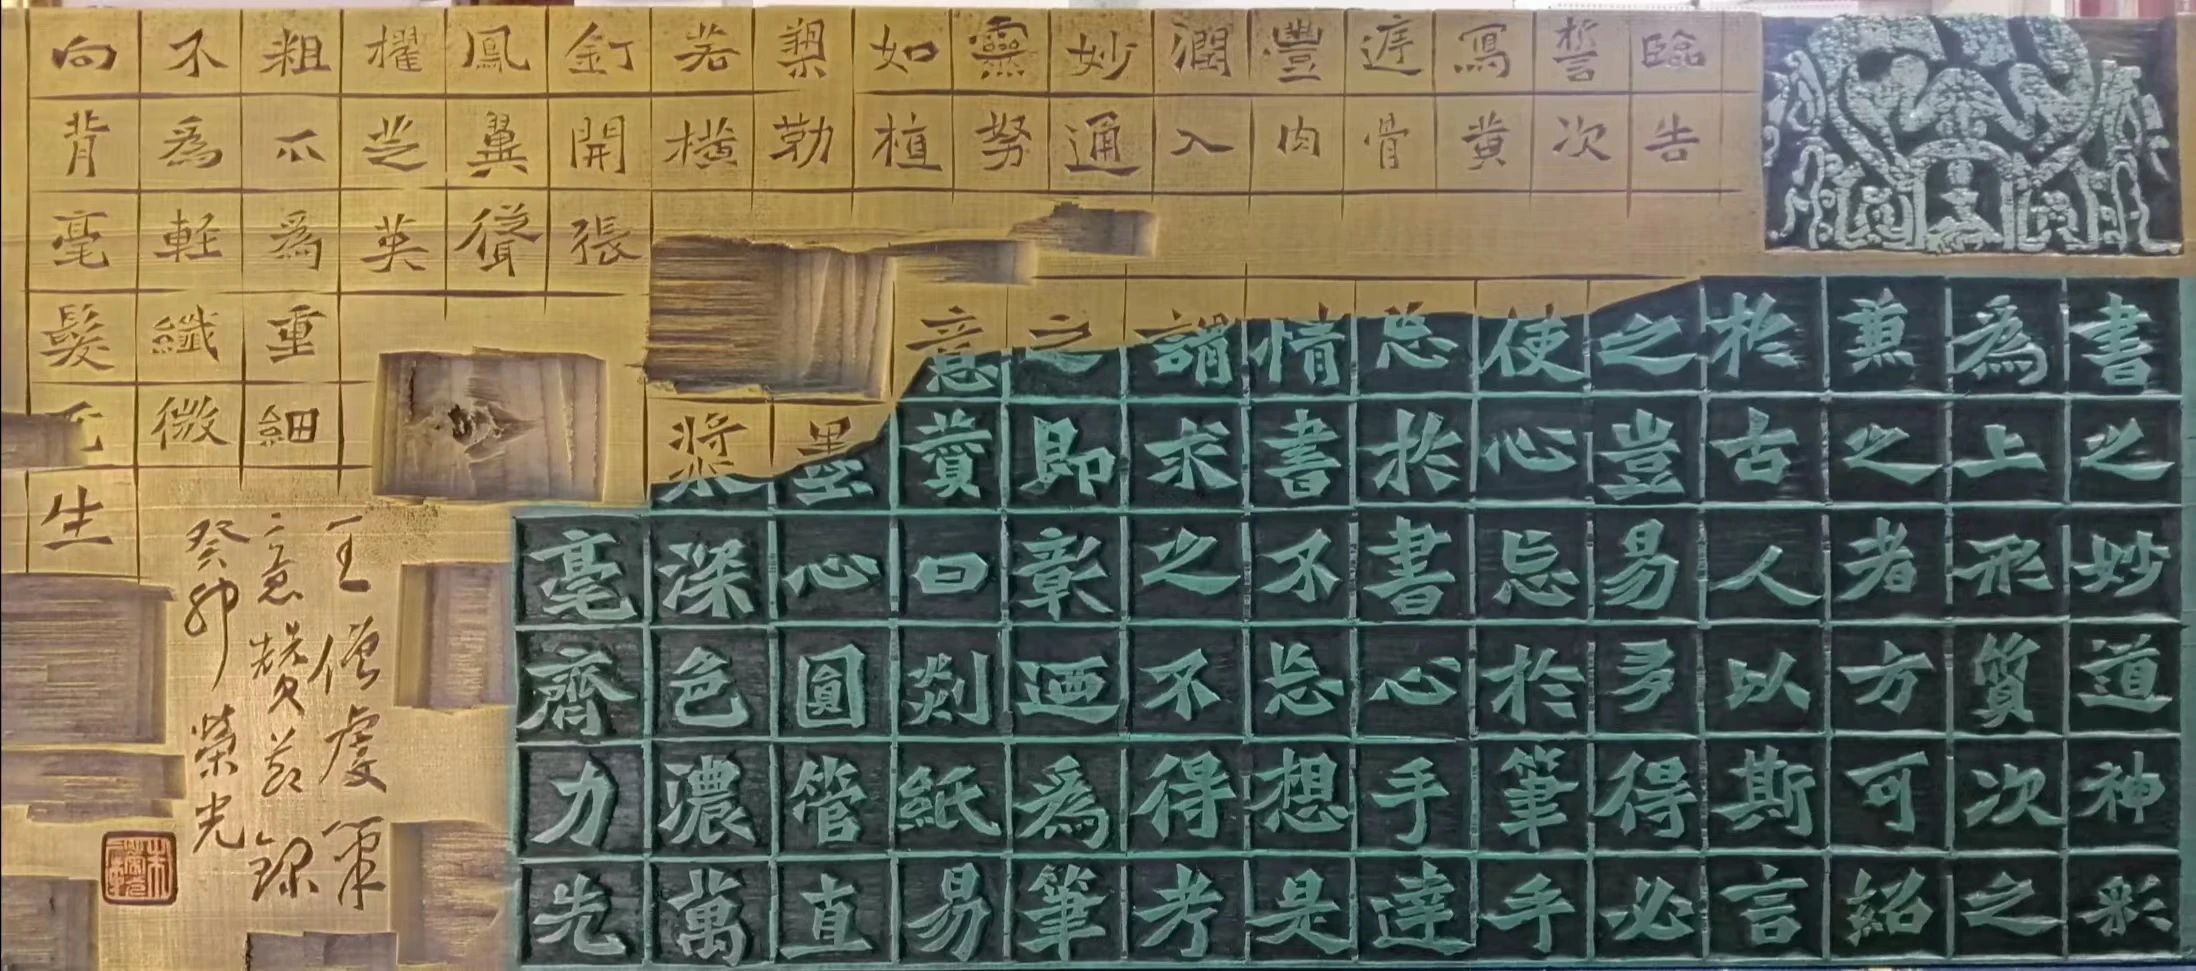 書之妙道神彩
為上形質次之
兼之者方可紹
於古人以斯言
之豈易多得必
使心忘於筆手
忘於書心手達
情書不忘想是
謂求之不得考
之即彰迺為筆
意贊曰剡紙易
墨心圓管直
漿深色濃萬
毫齊力先
臨告
誓次
寫黃
庭骨
豐肉
潤入
妙通
靈努
如植
槊勒
若橫
釘開張
鳳翼聳
擢芝英
粗不為重細
不為軽纖微
向背毫髮死生
王僧虔筆
意贊節錄
癸卯 榮光